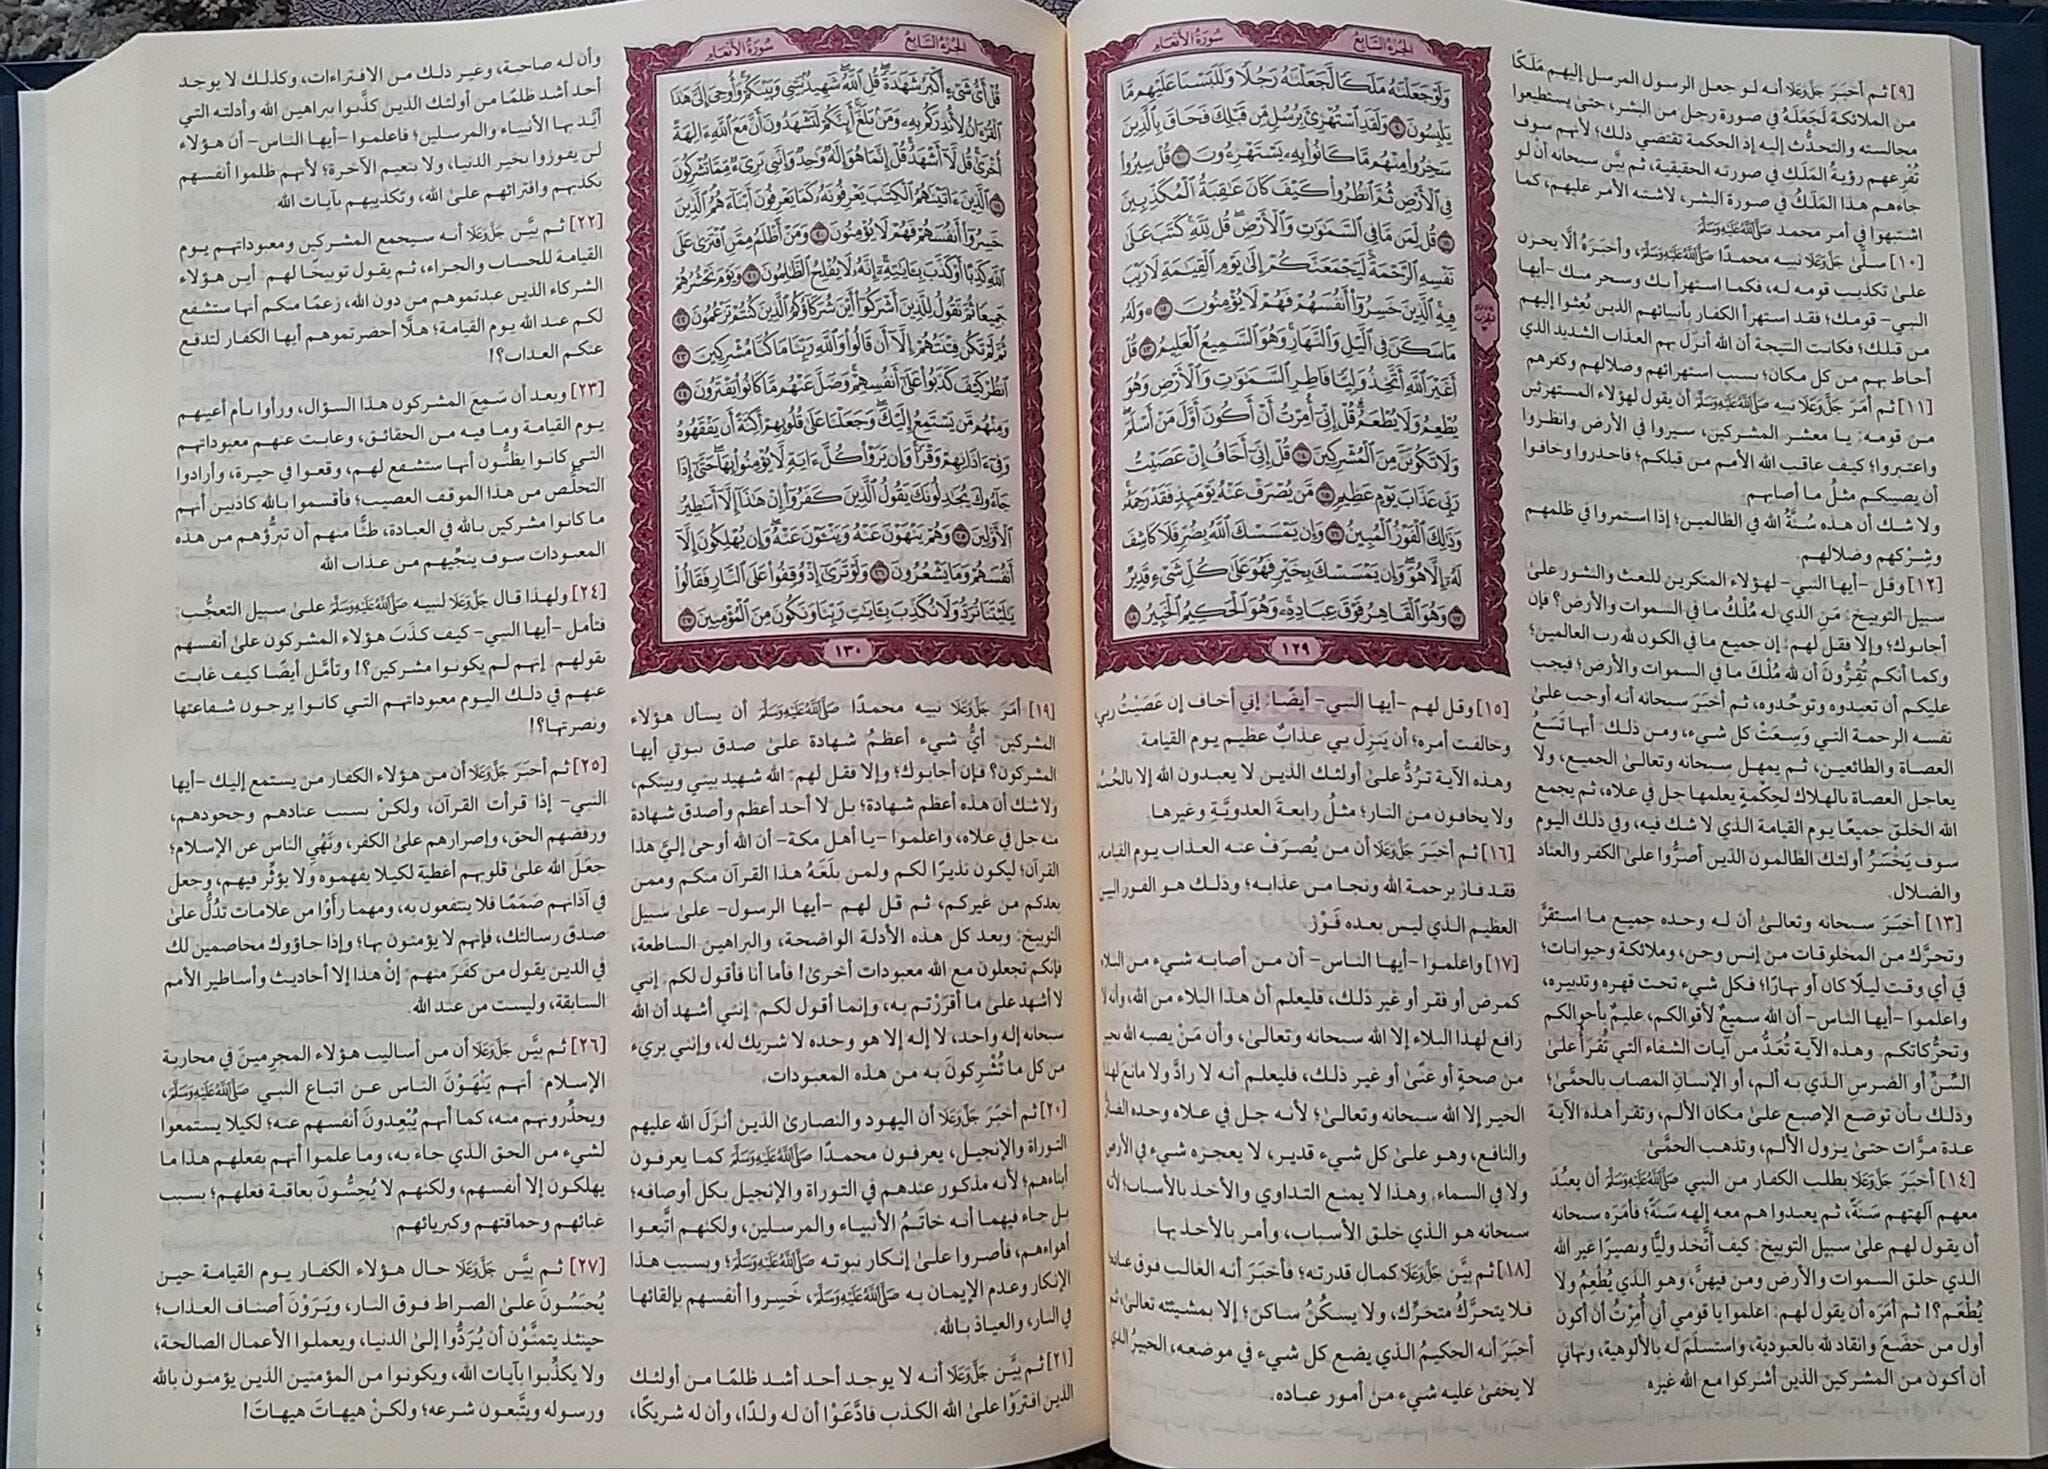 الجزء السابع
سورة الأنعام
وَلَوْ جَعَلْنَٰهُ مَلَكًا لَّجَعَلْنَٰهُ رَجُلًا وَلَلَبَسْنَا عَلَيْهِم مَّا
يَلْبِسُونَ ٩ وَلَقَدِ ٱسْتُهْزِئَ بِرُسُلٍ مِّن قَبْلِكَ فَحَاقَ بِٱلَّذِينَ
سَخِرُوا۟ مِنْهُم مَّا كَانُوا۟ بِهِۦ يَسْتَهْزِءُونَ ١٠ قُلْ سِيرُوا۟
فِى ٱلْأَرْضِ ثُمَّ ٱنظُرُوا۟ كَيْفَ كَانَ عَٰقِبَةُ ٱلْمُكَذِّبِينَ
١١ قُل لِّمَن مَّا فِى ٱلسَّمَٰوَٰتِ وَٱلْأَرْضِ ۖ قُل لِّلَّهِ ۚ كَتَبَ عَلَىٰ
نَفْسِهِ ٱلرَّحْمَةَ ۚ لَيَجْمَعَنَّكُمْ إِلَىٰ يَوْمِ ٱلْقِيَٰمَةِ لَا رَيْبَ
فِيهِ ۚ ٱلَّذِينَ خَسِرُوٓا۟ أَنفُسَهُمْ فَهُمْ لَا يُؤْمِنُونَ ١٢ ۞ وَلَهُۥ
مَا سَكَنَ فِى ٱلَّيْلِ وَٱلنَّهَارِ ۚ وَهُوَ ٱلسَّمِيعُ ٱلْعَلِيمُ ١٣ قُلْ
أَغَيْرَ ٱللَّهِ أَتَّخِذُ وَلِيًّا فَاطِرِ ٱلسَّمَٰوَٰتِ وَٱلْأَرْضِ وَهُوَ
يُطْعِمُ وَلَا يُطْعَمُ ۗ قُلْ إِنِّىٓ أُمِرْتُ أَنْ أَكُونَ أَوَّلَ مَنْ أَسْلَمَ ۖ
وَلَا تَكُونَنَّ مِنَ ٱلْمُشْرِكِينَ ١٤ قُلْ إِنِّىٓ أَخَافُ إِنْ عَصَيْتُ
رَبِّى عَذَابَ يَوْمٍ عَظِيمٍ ١٥ مَّن يُصْرَفْ عَنْهُ يَوْمَئِذٍ فَقَدْ رَحِمَهُۥ ۚ
وَذَٰلِكَ ٱلْفَوْزُ ٱلْمُبِينُ ١٦ وَإِن يَمْسَسْكَ ٱللَّهُ بِضُرٍّ فَلَا كَاشِفَ
لَهُۥٓ إِلَّا هُوَ ۖ وَإِن يَمْسَسْكَ بِخَيْرٍ فَهُوَ عَلَىٰ كُلِّ شَىْءٍ قَدِيرٌ
١٧ وَهُوَ ٱلْقَاهِرُ فَوْقَ عِبَادِهِۦ ۚ وَهُوَ ٱلْحَكِيمُ ٱلْخَبِيرُ ١٨
١٢٩
[٩] ثم أخبَرَ جَلَّ وَعَلَا أنه لو جعل الرسول المرسل إليهم مَلَكًا
من الملائكة لَجَعَلَهُ في صورة رجل من البشر، حتىٰ يستطيعوا
مجالسته والتحدُّث إليه إذ الحكمة تقتضي ذلك؛ لأنهم سوف
تُفْزِعهم رؤيةُ المَلَك في صورته الحقيقية، ثم بيَّن سبحانه أن لو
جاءهم هذا المَلَكُ في صورة البشر، لاشتبه الأمر عليهم، كما
اشتبهوا في أمر محمد صَلَّى اللَّهُ عَلَيْهِ وَسَلَّمَ.
[١٠] سلَّىٰ جَلَّ وَعَلَا نبيه محمدًا صَلَّى اللَّهُ عَلَيْهِ وَسَلَّمَ، وأخبَرَهُ ألَّا يحزن
علىٰ تكذيب قومه له، فكما استهزأ بك وسخر منك -أيها
النبي- قومك؛ فقد استهزأ الكفار بأنبيائهم الذين بُعثوا إليهم
من قبلك؛ فكانت النتيجة أن الله أنزَلَ بهم العذاب الشديد الذي
أحاط بهم من كل مكان؛ بسبب استهزائهم وضلالهم وكفرهم
[١١] ثم أمَرَ جَلَّ وَعَلَا نبيه صَلَّى اللَّهُ عَلَيْهِ وَسَلَّمَ أن يقول لهؤلاء المستهزئين
من قومه: يا معشر المشركين، سيروا في الأرض وانظروا
واعتبروا؛ كيف عاقب الله الأمم من قبلكم؛ فاحذروا وخافوا
أن يصيبكم مثلُ ما أصابهم.
ولا شك أن هذه سُنَّةُ الله في الظالمين؛ إذا استمروا في ظلمهم
وشِرْكهم وضلالهم.
[١٢] وقل -أيها النبي- لهؤلاء المنكرين للبعث والنشور علىٰ
سبيل التوبيخ: مَن الذي له مُلْكُ ما في السموات والأرض؟ فإن
أجابوك؛ وإلا فقل لهم: إن جميع ما في الكون لله رب العالمين؛
وكما أنكم تُقِرُّونَ أن لله مُلْكَ ما في السموات والأرض؛ فيجب
عليكم أن تعبدوه وتوحِّدوه، ثم أخبَرَ سبحانه أنه أوجب علىٰ
نفسه الرحمة التي وَسِعَتْ كل شيء، ومن ذلك: أنها تَسَعُ
العصاة والطائعين، ثم يمهل سبحانه وتعالىٰ الجميع، ولا
يعاجل العصاة بالهلاك لحِكْمةٍ يعلمها جل في علاه، ثم يجمع
الله الخلق جميعًا يوم القيامة الذي لا شك فيه، وفي ذلك اليوم
سوف يَخْسَرُ أولئك الظالمون الذين أصرُّوا علىٰ الكفر والعناد
والضلال.
[١٣] أخبَرَ سبحانه وتعالىٰ أن له وحده جميع ما استقرَّ
وتحرَّك من المخلوقات من إنس وجن، وملائكة وحيوانات؛
في أي وقت ليلًا كان أو نهارًا؛ فكل شيء تحت قهره وتدبيره،
واعلموا -أيها الناس- أن الله سميعٌ لأقوالكم، عليمٌ بأحوالكم
وتحرُّكاتكم. وهذه الآية تُعَدُّ من آيات الشفاء التي تُقْرَأُ علىٰ
السِّنِّ أو الضرس الذي به ألم، أو الإنسان المصاب بالحمَّىٰ؛
وذلك بأن توضع الإصبع علىٰ مكان الألم، وتقرأ هذه الآية
عدة مرَّات حتىٰ يزول الألم، وتذهب الحمَّىٰ.
[١٤] أخبَرَ جَلَّ وَعَلَا بطلب الكفار من النبي صَلَّى اللَّهُ عَلَيْهِ وَسَلَّمَ أن يعبُدَ
معهم آلهتهم سَنَةً، ثم يعبدوا هم معه إلهه سَنَةً؛ فأمَرَه سبحانه
أن يقول لهم علىٰ سبيل التوبيخ: كيف أتَّخذ وليًّا ونصيرًا غير الله
الذي خلق السموات والأرض ومن فيهنَّ، وهو الذي يُطْعِمُ ولا
يُطْعَم؟! ثم أمَرَه أن يقول لهم: اعلموا يا قومي أني أُمِرْتُ أن أكون
أول من خضَعَ وانقاد لله بالعبودية، واستسلَمَ له بالألوهية، ونهاني
أن أكون من المشركين الذين أشركوا مع الله غيره.
[١٥] وقل لهم -أيها النبي- أيضًا: إني أخاف إن عَصَيْتُ ربي
وخالفت أمره؛ أن يَنزِلَ بي عذابٌ عظيم يوم القيامة.
وهذه الآية تردُّ علىٰ أولئك الذين لا يعبدون الله إلا
ولا يخافون من النار؛ مثلُ رابعةَ العدويَّةِ وغيرها.
[١٦] ثم أخبَرَ جَلَّ وَعَلَا أن من يُصرَفْ عنه العذاب يوم القيامة
فقد فاز برحمة الله ونجا من عذابه؛ وذلك هو الفوز
العظيم الذي ليس بعده فَوْز.
[١٧] واعلموا -أيها الناس- أن من أصابه شيء من
كمرض أو فقر أو غير ذلك، فليعلم أن هذا البلاء من الله، وأنه لا
رافع لهذا البلاء إلا الله سبحانه وتعالىٰ، وأن مَنْ يصبه الله
من صحةٍ أو غنًى أو غير ذلك، فليعلم أنه لا رادَّ ولا مانعَ لهذا
الخير إلا الله سبحانه وتعالىٰ؛ لأنه جل في علاه وحده
والنافع، وهو علىٰ كل شيء قدير، لا يعجزه شيء في الأرض
ولا في السماء. وهذا لا يمنع التداوي والأخذ بالأسباب؛ لأنه
سبحانه هو الذي خلق الأسباب، وأمر بالأخذ بها.
[١٨] ثم بيَّن جَلَّ وَعَلَا كمال قدرته؛ فأخبَرَ أنه الغالب فوق
فلا يتحرَّكُ متحرِّك، ولا يسكُنُ ساكن؛ إلا بمشيئته تعالىٰ، ثم
أخبَرَ أنه الحكيمُ الذي يضع كل شيء في موضعه، الخبيرُ الذي
لا يخفىٰ عليه شيء من أمور عباده.
الجزء السابع
سورة الأنعام
قُلْ أَىُّ شَىْءٍ أَكْبَرُ شَهَٰدَةً ۖ قُلِ ٱللَّهُ ۖ شَهِيدٌۢ بَيْنِى وَبَيْنَكُمْ ۚ وَأُوحِىَ إِلَىَّ هَٰذَا
ٱلْقُرْءَانُ لِأُنذِرَكُم بِهِۦ وَمَنۢ بَلَغَ ۚ أَئِنَّكُمْ لَتَشْهَدُونَ أَنَّ مَعَ ٱللَّهِ ءَالِهَةً
أُخْرَىٰ ۚ قُل لَّآ أَشْهَدُ ۚ قُلْ إِنَّمَا هُوَ إِلَٰهٌ وَٰحِدٌ وَإِنَّنِى بَرِىٓءٌ مِّمَّا تُشْرِكُونَ
١٩ ٱلَّذِينَ ءَاتَيْنَٰهُمُ ٱلْكِتَٰبَ يَعْرِفُونَهُۥ كَمَا يَعْرِفُونَ أَبْنَآءَهُمُ ۘ ٱلَّذِينَ
خَسِرُوٓا۟ أَنفُسَهُمْ فَهُمْ لَا يُؤْمِنُونَ ٢٠ وَمَنْ أَظْلَمُ مِمَّنِ ٱفْتَرَىٰ عَلَى
ٱللَّهِ كَذِبًا أَوْ كَذَّبَ بِـَٔايَٰتِهِۦٓ ۗ إِنَّهُۥ لَا يُفْلِحُ ٱلظَّٰلِمُونَ ٢١ وَيَوْمَ نَحْشُرُهُمْ
جَمِيعًا ثُمَّ نَقُولُ لِلَّذِينَ أَشْرَكُوٓا۟ أَيْنَ شُرَكَآؤُكُمُ ٱلَّذِينَ كُنتُمْ تَزْعُمُونَ ٢٢
ثُمَّ لَمْ تَكُن فِتْنَتُهُمْ إِلَّآ أَن قَالُوا۟ وَٱللَّهِ رَبِّنَا مَا كُنَّا مُشْرِكِينَ ٢٣
ٱنظُرْ كَيْفَ كَذَبُوا۟ عَلَىٰٓ أَنفُسِهِمْ ۚ وَضَلَّ عَنْهُم مَّا كَانُوا۟ يَفْتَرُونَ ٢٤
وَمِنْهُم مَّن يَسْتَمِعُ إِلَيْكَ ۖ وَجَعَلْنَا عَلَىٰ قُلُوبِهِمْ أَكِنَّةً أَن يَفْقَهُوهُ
وَفِىٓ ءَاذَانِهِمْ وَقْرًا ۚ وَإِن يَرَوْا۟ كُلَّ ءَايَةٍ لَّا يُؤْمِنُوا۟ بِهَا ۚ حَتَّىٰٓ إِذَا
جَآءُوكَ يُجَٰدِلُونَكَ يَقُولُ ٱلَّذِينَ كَفَرُوٓا۟ إِنْ هَٰذَآ إِلَّآ أَسَٰطِيرُ
ٱلْأَوَّلِينَ ٢٥ وَهُمْ يَنْهَوْنَ عَنْهُ وَيَنْـَٔوْنَ عَنْهُ ۖ وَإِن يُهْلِكُونَ إِلَّآ
أَنفُسَهُمْ وَمَا يَشْعُرُونَ ٢٦ وَلَوْ تَرَىٰٓ إِذْ وُقِفُوا۟ عَلَى ٱلنَّارِ فَقَالُوا۟
يَٰلَيْتَنَا نُرَدُّ وَلَا نُكَذِّبَ بِـَٔايَٰتِ رَبِّنَا وَنَكُونَ مِنَ ٱلْمُؤْمِنِينَ ٢٧
١٣٠
[١٩] أمَرَ جَلَّ وَعَلَا نبيه محمدًا صَلَّى اللَّهُ عَلَيْهِ وَسَلَّمَ أن يسأل هؤلاء
المشركين: أيُّ شيء أعظمُ شهادة علىٰ صدق نبوتي أيها
المشركون؟ فإن أجابوك؛ وإلا فقل لهم: الله شهيد بيني وبينكم،
ولا شك أن هذه أعظم شهادة؛ بل لا أحد أعظم وأصدق شهادة
منه جل في علاه، واعلموا -يا أهل مكة- أن الله أوحىٰ إليَّ هذا
القرآن؛ ليكون نذيرًا لكم ولمن بلَغَهُ هذا القرآن منكم وممن
بعدكم من غيركم، ثم قل لهم -أيها الرسول- علىٰ سبيل
التوبيخ: وبعد كل هذه الأدلة الواضحة، والبراهين الساطعة،
فإنكم تجعلون مع الله معبودات أخرىٰ! فأما أنا فأقول لكم: إنني
لا أشهد علىٰ ما أقرَرْتم به، وإنما أقول لكم: إنني أشهد أن الله
سبحانه إله واحد، لا إله إلا هو وحده لا شريك له، وإنني بريء
من كل ما تُشْرِكونَ به من هذه المعبودات.
[٢٠] ثم أخبَرَ جَلَّ وَعَلَا أن اليهود والنصارىٰ الذين أنزَلَ الله عليهم
التوراة والإنجيل، يعرفون محمدًا صَلَّى اللَّهُ عَلَيْهِ وَسَلَّمَ كما يعرفون
أبناءهم؛ لأنه مذكور عندهم في التوراة والإنجيل بكل أوصافه؛
بل جاء فيهما أنه خاتَمُ الأنبياء والمرسلين، ولكنهم اتَّبعوا
أهواءهم، فأصروا علىٰ إنكار نبوته صَلَّى اللَّهُ عَلَيْهِ وَسَلَّمَ؛ وبسبب هذا
الإنكار وعدم الإيمان به صَلَّى اللَّهُ عَلَيْهِ وَسَلَّمَ، خَسِروا أنفسهم بإلقائها
في النار، والعياذ بالله.
[٢١] ثم بيَّن جَلَّ وَعَلَا أنه لا يوجد أحد أشد ظلمًا من أولئك
الذين افتَروْا علىٰ الله الكذب فادَّعَوْا أن له ولدًا، وأن له شريكًا،
وأن له صاحبة، وغير ذلك من الافتراءات، وكذلك لا يوجد
أحد أشد ظلمًا من أولئك الذين كذَّبوا ببراهين الله وأدلته التي
أيَّد بها الأنبياء والمرسلين؛ فاعلموا -أيها الناس- أن هؤلاء
لن يفوزوا بخير الدنيا، ولا بنعيم الآخرة؛ لأنهم ظلموا أنفسهم
بكذبهم وافترائهم علىٰ الله، وتكذيبهم بآيات الله.
[٢٢] ثم بيَّن جَلَّ وَعَلَا أنه سيجمع المشركين ومعبوداتهم يوم
القيامة للحساب والجزاء، ثم يقول توبيخًا لهم: أين هؤلاء
الشركاء الذين عبدتموهم من دون الله، زعمًا منكم أنها ستشفع
لكم عند الله يوم القيامة؛ هلَّا أحضرتموهم أيها الكفار لتدفع
عنكم العذاب؟!
[٢٣] وبعد أن سَمِعَ المشركون هذا السؤال، ورأوا بأم أعينهم
يوم القيامة وما فيه من الحقائق، وغابت عنهم معبوداتهم
التي كانوا يظنُّون أنها ستشفع لهم، وقعوا في حيرة، وأرادوا
التخلُّص من هذا الموقف العصيب؛ فأقسموا بالله كاذبين أنهم
ما كانوا مشركين بالله في العبادة، ظنًّا منهم أن تبرُّؤهم من هذه
المعبودات سوف ينجِّيهم من عذاب الله
[٢٤] ولهذا قال جَلَّ وَعَلَا لنبيه صَلَّى اللَّهُ عَلَيْهِ وَسَلَّمَ علىٰ سبيل التعجُّب:
فتأمل -أيها النبي- كيف كذَبَ هؤلاء المشركون علىٰ أنفسهم
بقولهم: إنهم لم يكونوا مشركين؟! وتأمَّل أيضًا كيف غابت
عنهم في ذلك اليوم معبوداتهم التي كانوا يرجون شفاعتها
ونصرتها؟!
[٢٥] ثم أخبَرَ جَلَّ وَعَلَا أن من هؤلاء الكفار من يستمع إليك -أيها
النبي- إذا قرأت القرآن، ولكنْ بسبب عنادهم وجحودهم،
ورفضهم الحق، وإصرارهم علىٰ الكفر، ونَهْيِ الناس عن الإسلام؛
جعَلَ الله علىٰ قلوبهم أغطية لكيلا يفهموه ولا يؤثِّر فيهم، وجعل
في آذانهم صَمَمًا فلا ينتفعون به، ومهما رأَوْا من علامات تدُلُّ علىٰ
صدق رسالتك، فإنهم لا يؤمنون بها؛ وإذا جاؤوك مخاصمين لك
في الدين يقول من كفَرَ منهم: إنْ هذا إلا أحاديث وأساطير الأمم
السابقة، وليست من عند الله.
[٢٦] ثم بيَّن جَلَّ وَعَلَا أن من أساليب هؤلاء المجرمينَ في محاربة
الإسلام: أنهم يَنْهَوْنَ الناس عن اتباع النبي صَلَّى اللَّهُ عَلَيْهِ وَسَلَّمَ،
ويحذِّرونهم منه، كما أنهم يُبْعِدونَ أنفسهم عنه؛ لكيلا يستمعوا
لشيء من الحق الذي جاء به، وما علموا أنهم بفعلهم هذا ما
يهلكون إلا أنفسهم، ولكنهم لا يُحِسُّونَ بعاقبة فعلهم؛ بسبب
غبائهم وحماقتهم وكبريائهم.
[٢٧] ثم بيَّن جَلَّ وَعَلَا حال هؤلاء الكفار يوم القيامة حين
يُحبَسُونَ علىٰ الصراط فوق النار، ويَرَوْنَ أصناف العذاب؛
حينئذ يتمنَّوْن أن يُرَدُّوا إلىٰ الدنيا، ويعملوا الأعمال الصالحة،
ولا يكذِّبوا بآيات الله، ويكونوا من المؤمنين الذين يؤمنون بالله
ورسوله ويتَّبعون شرعه؛ ولكنْ هيهاتَ هيهاتَ!